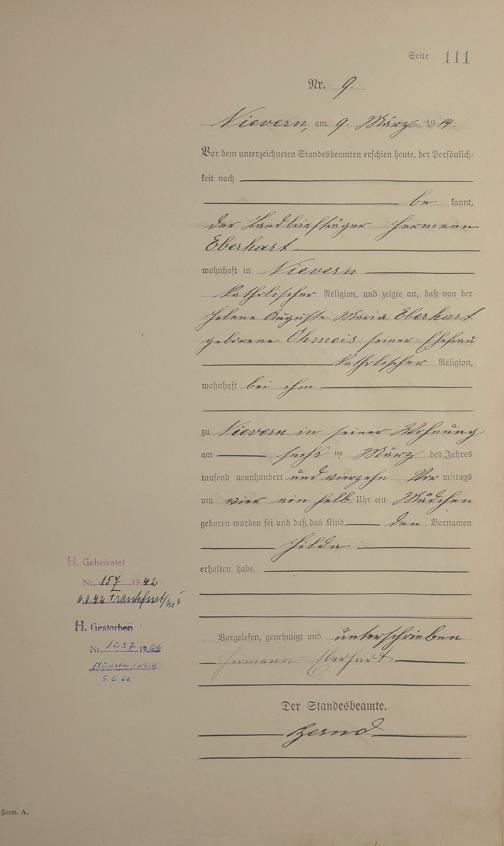 Seite 111
Nr. 9.
Nievern, am 9. März 1914.
Vor dem unterzeichneten Standesbeamten erschien heute, der Persönlich-
keit nach
be kannt,
der Landbriefträger Hermann
Eberhart
wohnhaft in Nievern
katholischer Religion, und zeigte an, daß von der
Helene Auguste Maria Eberhart
geborene Ohmeis seiner Ehefrau
katholischer Religion,
wohnhaft bei ihm
zu Nievern in seiner Wohnung
am sechs ten März des Jahres
tausend neunhundert und vierzehn Vor mittags
um vier ein halb Uhr ein Mädchen
geboren worden sei und daß das Kind den Vornamen
Hilda
erhalten habe.
H. Geheiratet
Nr. 157 1942
Frankfurt/M
H. Gestorben
Nr. 1237 1966
5.6.66
Vorgelesen, genehmigt und unterschrieben
Hermann Eberhart
Der Standesbeamte.
Form. A.